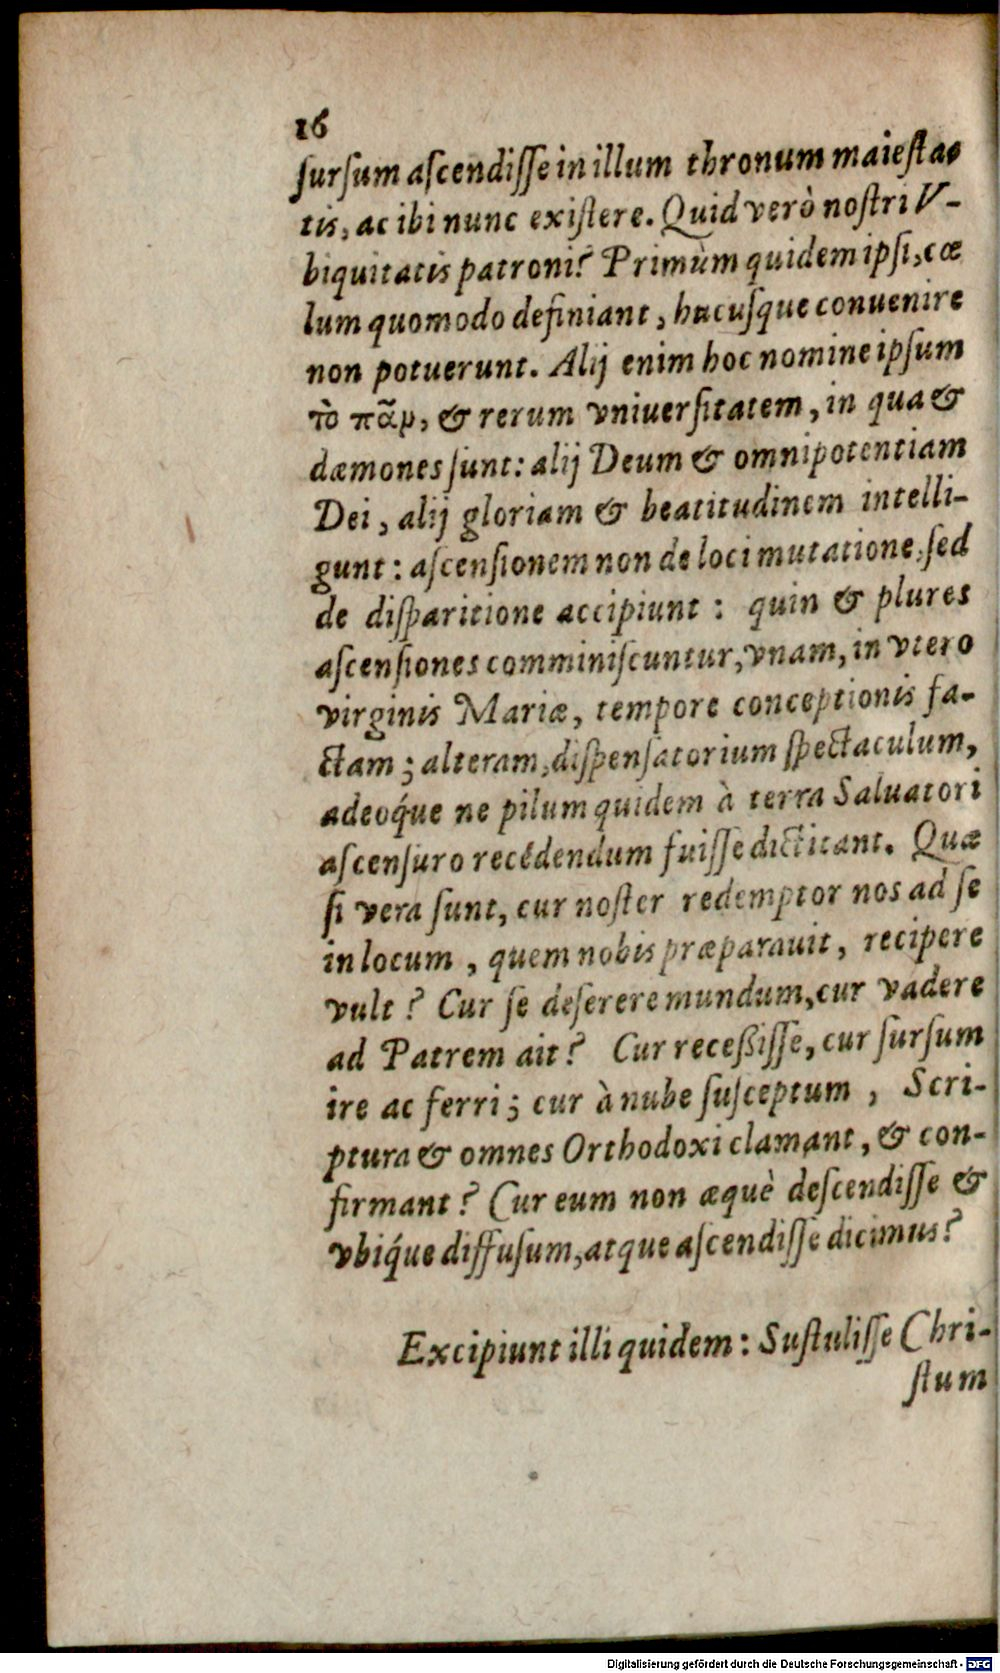 16
ſurſum aſcendiſſe in illum thronum maieſta-
tis, ac ibi nunc exiſtere. Quid verò noſtri V-
biquitatis patroni? Primùm quidem ipſi, cœ
lum quomodo definiant, hucuſque conuenire
non potuerunt. Alij enim hoc nomine ipſum
τὸ πᾶν, & rerum vniuerſitatem, in qua &
dæmones ſunt: alij Deum & omnipotentiam
Dei, alij gloriam & beatitudinem intelli-
gunt: aſcenſionem non de loci mutatione, ſed
de diſparitione accipiunt: quin & plures
aſcenſiones comminiſcuntur, vnam, in vtero
virginis Mariæ, tempore conceptionis fa-
ctam; alteram, diſpenſatorium ſpectaculum,
adeoq́ue ne pilum quidem à terra Saluatori
aſcenſuro recédendum fuiſſe dictitant. Quæ
ſi vera ſunt, cur noſter redemptor nos ad ſe
in locum, quem nobis præparauit, recipere
vult? Cur ſe deſerere mundum, cur vadere
ad Patrem ait? Cur receßiſſe, cur ſurſum
ire ac ferri; cur à nube ſuſceptum, Scri-
ptura & omnes Orthodoxi clamant, & con-
firmant? Cur eum non æquè deſcendiſſe &
vbiq́ue diffuſum, atque aſcendiſſe dicimus?
Excipiunt illi quidem: Suſtuliſſe Chri-
ſtum
Digitalisierung gefördert durch die Deutsche Forschungsgemeinschaft - DFG